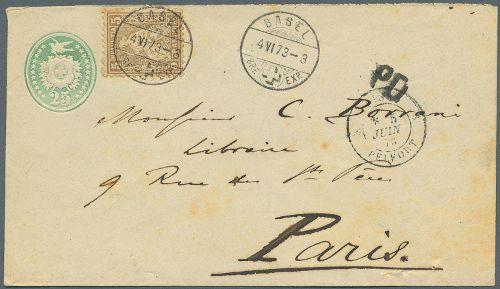 25
5
BASEL
4 VI 73
BRF. EXP.
BASEL
4 VI 73 - 3
BRF. EXP.
PD
5
JUIN
73
BELFORT
Monsieur C.
Libraire
9 Rue des Sts Pères
Paris.